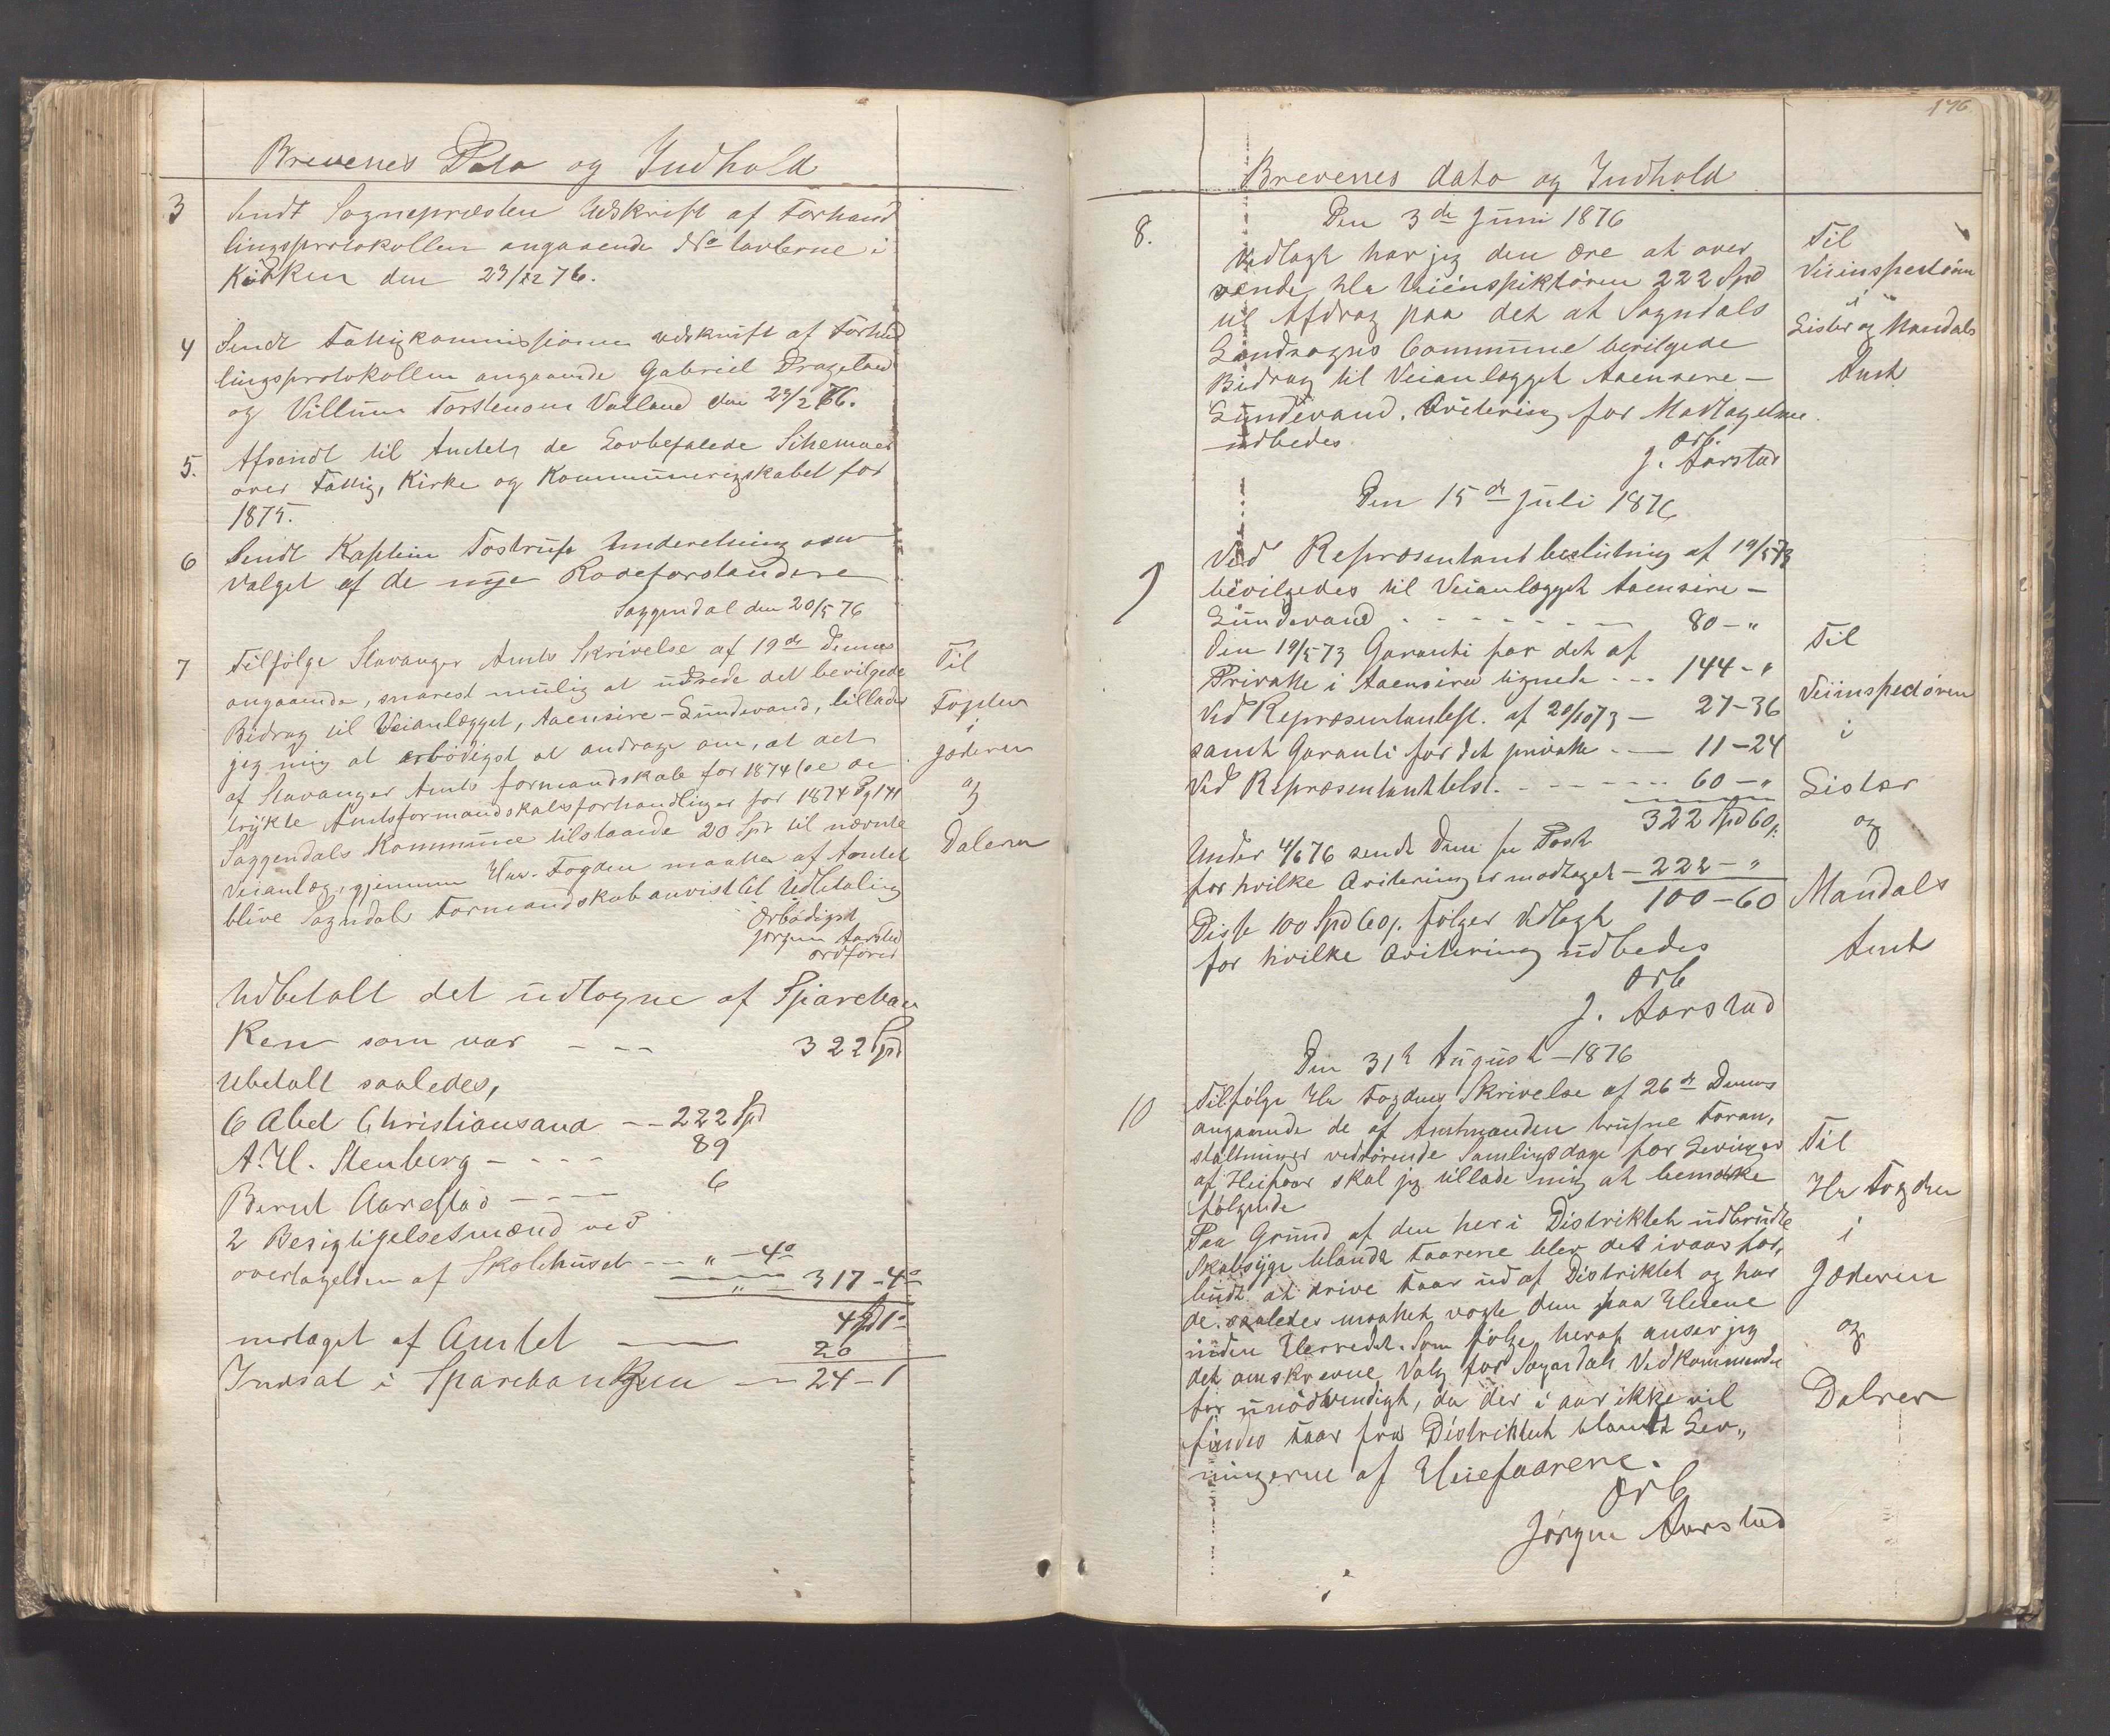 Brevenes Dato og Indhold
3 Sendt Sognepræsten Udskrift af Forhand
lingsprotokollen angaaende No tavlerne i
Kirken den 23/12 76.
4 Sendt Fattigkommissionen udskrift af Forhand
lingsprotokollen angaaende Gabriel Drageland
og Villum Torstensen Valland den 23/2 76.
5. Afsendt til Amtet de Lovbefalede Schemaer
over Fattig, Kirke og Kommuneregskabet for
1875.
6 Sendt Kaptein Tostrup Underetning om
Valget af de nye Rodeforstandere
Soggendal den 20/5 76
7 Tilfølge Stavanger Amts Skrivelse af 19de Dennes
angaaende, snarest mulig at udrede det bevilgede
Bidrag til Veianlægget, Aaensire-Lundevand, tillader
jeg mig at ærbödigst at andrage om, at det
af Stavanger Amts formandskab for 1874 (se de
trykte Amtsformandskabsforhandlinger for 1874 Pg 141
Soggendals Kommune tilstaaede 20 Spd til nævnte
Veianlæg, gjennem Hrr. Fogden maatte af Amtet
blive Sogndals Formandskab anvist til Udbetaling
Ærbödigst
Jørgen Aarstad
ordförer
Til
Fogden
i
Jæderen
og
Dalerne
Udbetalt det udtagne af Spareban
ken som var - - - 322 Spd
Ubetalt saaledes,
C Abel Christiansand - - 222 Spd
A. H. Stenberg - - - - 89
Bernt Aarestad - - - - 6
2 Besigtigelsesmænd ved
overtagelsen af Skolehuset - - " - 4o
" - 317 - 4o
4 Spd 1o
modtaget af Amtet — 20
Indsat i Sparebanken — 24 - 1
176
Brevenes dato og Indhold
Den 3de Juni 1876
8. Vedlagt har jeg den ære at over
sende Hr Veiinspiktøren 222 Spd
til Afdrag paa det at Sogndals
Landsogns Commune bevilgede
Bidrag til Veianlægget Aaensire -
Lundevand. Qvitering for Modtagelsen
udbedes
Ærb.
J. Aarstad
Til
Veiinspectøren
i
Lister og Mandals
Amt
Den 15de Juli 1876
9 Ved Repræsentantbeslutning af 19/5 73
bevilgedes til Veianlægget Aaensire -
Lundevand - - - - - - - 80 - "
Den 19/5 73 Garanti for det af
Private i Aaensire tegnede - - - 144 - "
Ved Repræsentantbesl. af 20/10 73 - 27 - 36
samt Garanti for det private - - - 11 - 24
Ved Repræsentantbesl. - - - - - - 60 - "
322 Spd 60 s.
Under 4/6 76 sendt Dem pr Post
for hvilke Qvitering er modtaget - 222 - "
100 - 60
Disse 100 Spd 60 s. følger Vedlagt
for hvilke Qvitering udbedes
Ærb
J. Aarstad
Til
Veiinspectøren
i
Lister
og
Mandals
Amt
Den 31t August - 1876
10 Tilfølge Hr Fogdens Skrivelse af 26de Dennes
angaaende de af Amtmanden trufne Foran,
staltninger vedrörende Samlingsdage for Levninger
af Heifaar skal jeg tillade mig at bemærke
følgende
Paa Grund af den her i Distriktet udbrudte
Skabsyge blandt Faarene blev det ivaar for,
budt at drive Faar ud af Distriktet og har
de saaledes maattet vogte dem paa Heiene
inden Herredet. Som følge heraf anser jeg
det omskrevne Valg for Sogndals Vedkommende
for unödvendigt, da der i aar ikke vil
findes Faar fra Distriktet blandt Lev„
ningerne af Heiefaarene.
Ærb
Jörgen Aarstad
Til
Hr Fogden
i
Jæderen
og
Dalrne